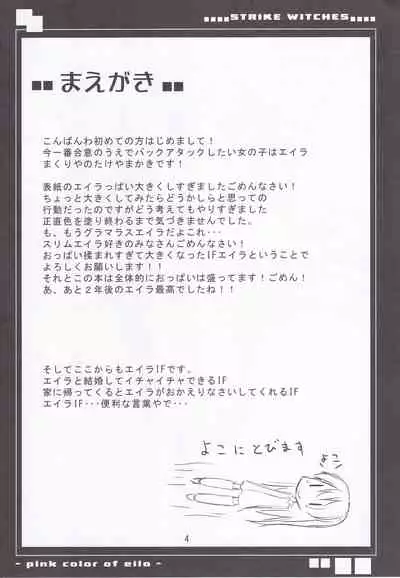 STRIKE WITCHES
まえがき
こんばんわ初めての方はじめまして！
今一番合意のうえでバックアタックしたい女の子はエイラ
まくりやのたけやまかきです！
表紙のエイラっぱい大きくしすぎましたごめんなさい！
ちょっと大きくしてみたらどうかしらと思っての
行動だったのですがどう考えてもやりすぎました
正直色を塗り終わるまで気づきませんでした。
も、もうグラマラスエイラだよこれ・・・
スリムエイラ好きのみなさんごめんなさい！
おっぱい揉まれすぎて大きくなったIFエイラということで
よろしくお願いします！！
それとこの本は全体的におっぱいは盛ってます！ごめん！
あ、あと２年後のエイラ最高でしたね！！
そしてここからもエイラIFです。
エイラと結婚してイチャイチャできるIF
家に帰ってくるとエイラがおかえりなさいしてくれるIF
エイラIF・・・便利な言葉やで・・・
よこにとびます
よこ
4
- pink color of eila -